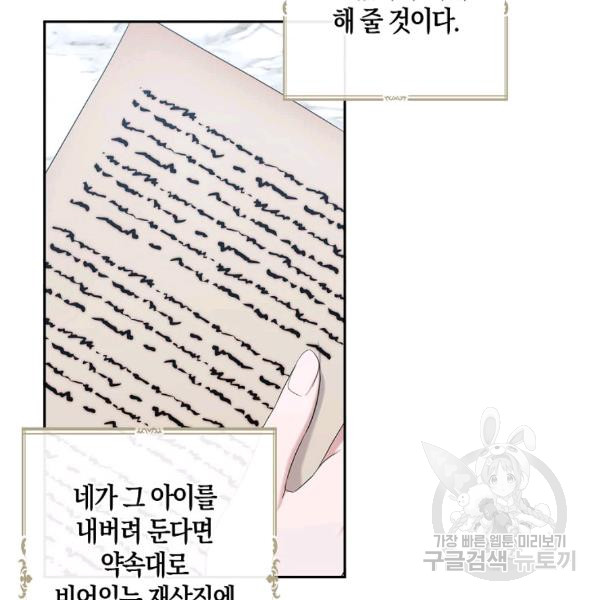 해 줄 것이다.
네가 그 아이를
내버려 둔다면
약속대로
비어있는 재상직에
가장 빠른 웹툰 미리보기
구글검색 뉴토끼